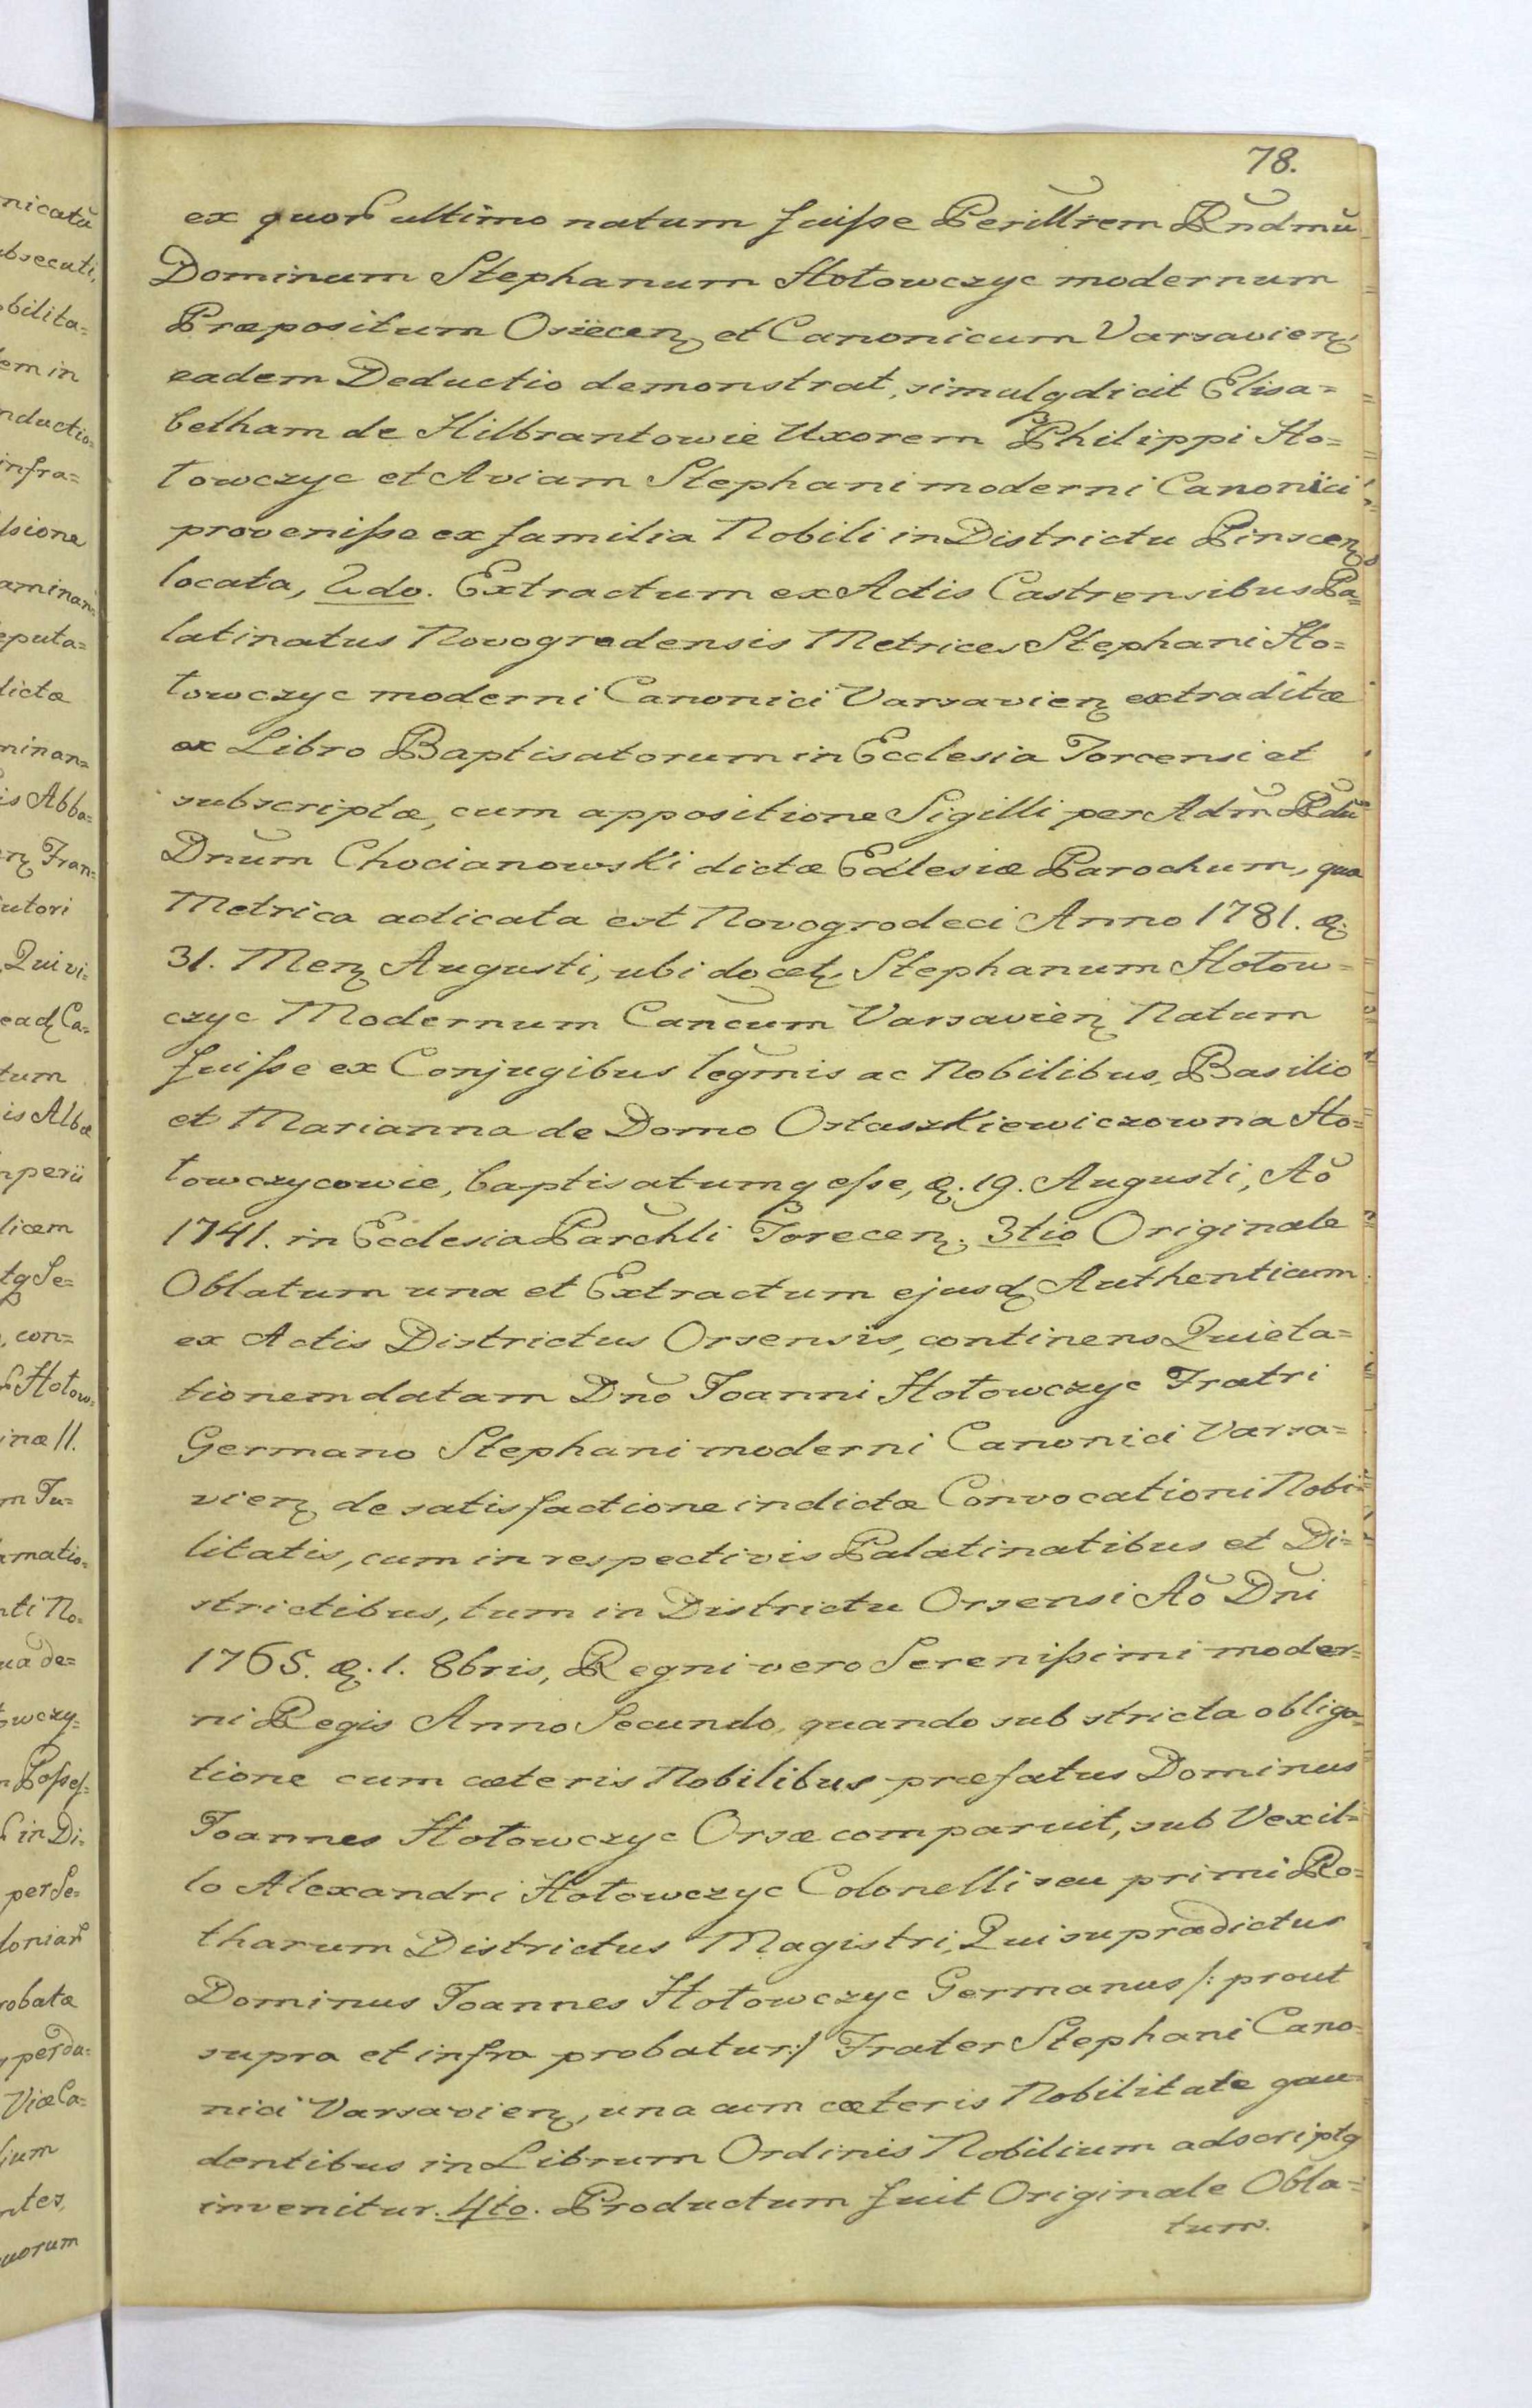 78.
ex quor ultimo natum fuisse Perillrem Rndmū
Dominum Stephanum Hołowczyc modernum
Præpositum Osiecen et Canonicum Varsavien,
eadem Deductio demonstrat, simulq dicit Elisa=
betham de Hilbrantowie Uxorem Philippi Ho=
łowczyc et Aviam Stephani moderni Canonici
provenisse ex familia Nobili in Districtu Pinscen
locata, 2do. Extractum ex Actis Castrensibus Pa=
latinatus Novogrodensis Metrices Stephani Ho=
łowczyc moderni Canonici Varsavien extraditæ
ex Libro Baptisatorum in Ecclesia Torcensi et
subscriptæ, cum appositione Sigilli per Adm̄ Rdū
Dnum Chocianowski dictæ Eclesiæ Parochum, qua
Metrica adicata est Novogrodeci Anno 1781. d.
31. Men Augusti, ubi docet, Stephanum Hołow=
czyc Modernum Cancum Varsavien Natum
fuisse ex Conjugibus legmis ac Nobilibus, Basilio
et Marianna de Domo Ostaszkiewiczowna Ho=
łowczycowie, baptisatumq esse, d. 19. Augusti, Aō
1741. in Ecclesia Parchli Torecen. 3tio Originale
Oblatum una et Extractum ejusd Authenticum
ex Actis Districtus Orsensis, continens Quieta=
tionem datam Dno Joanni Hołowczyc Fratri
Germano Stephani moderni Canonici Varsa=
vien de satisfactione indictæ Convocationi Nobi=
litatis, cum in respectivis Palatinatibus et Di=
strictibus, tum in Districtu Orsensi Aō Dni
1765. d. 1. 8bris, Regni vero Serenissimi moder=
ni Regis Anno Secundo, quando sub stricta obliga=
tione cum cæteris Nobilibus præfatus Dominus
Joannes Hołowczyc Orsæ comparuit, sub Vexil=
lo Alexandri Hołowczyc Colonelli seu primi Ro=
tharum Districtus Magistri, Qui supradictus
Dominus Joannes Hołowczyc Germanus /: prout
supra et infra probatur :/ Frater Stephani Cano=
nici Varsavien, una cum cæteris Nobilitate gau=
dentibus in Librum Ordinis Nobilium adscriptq
invenitur. 4to. Productum fuit Originale Obla=
tum.